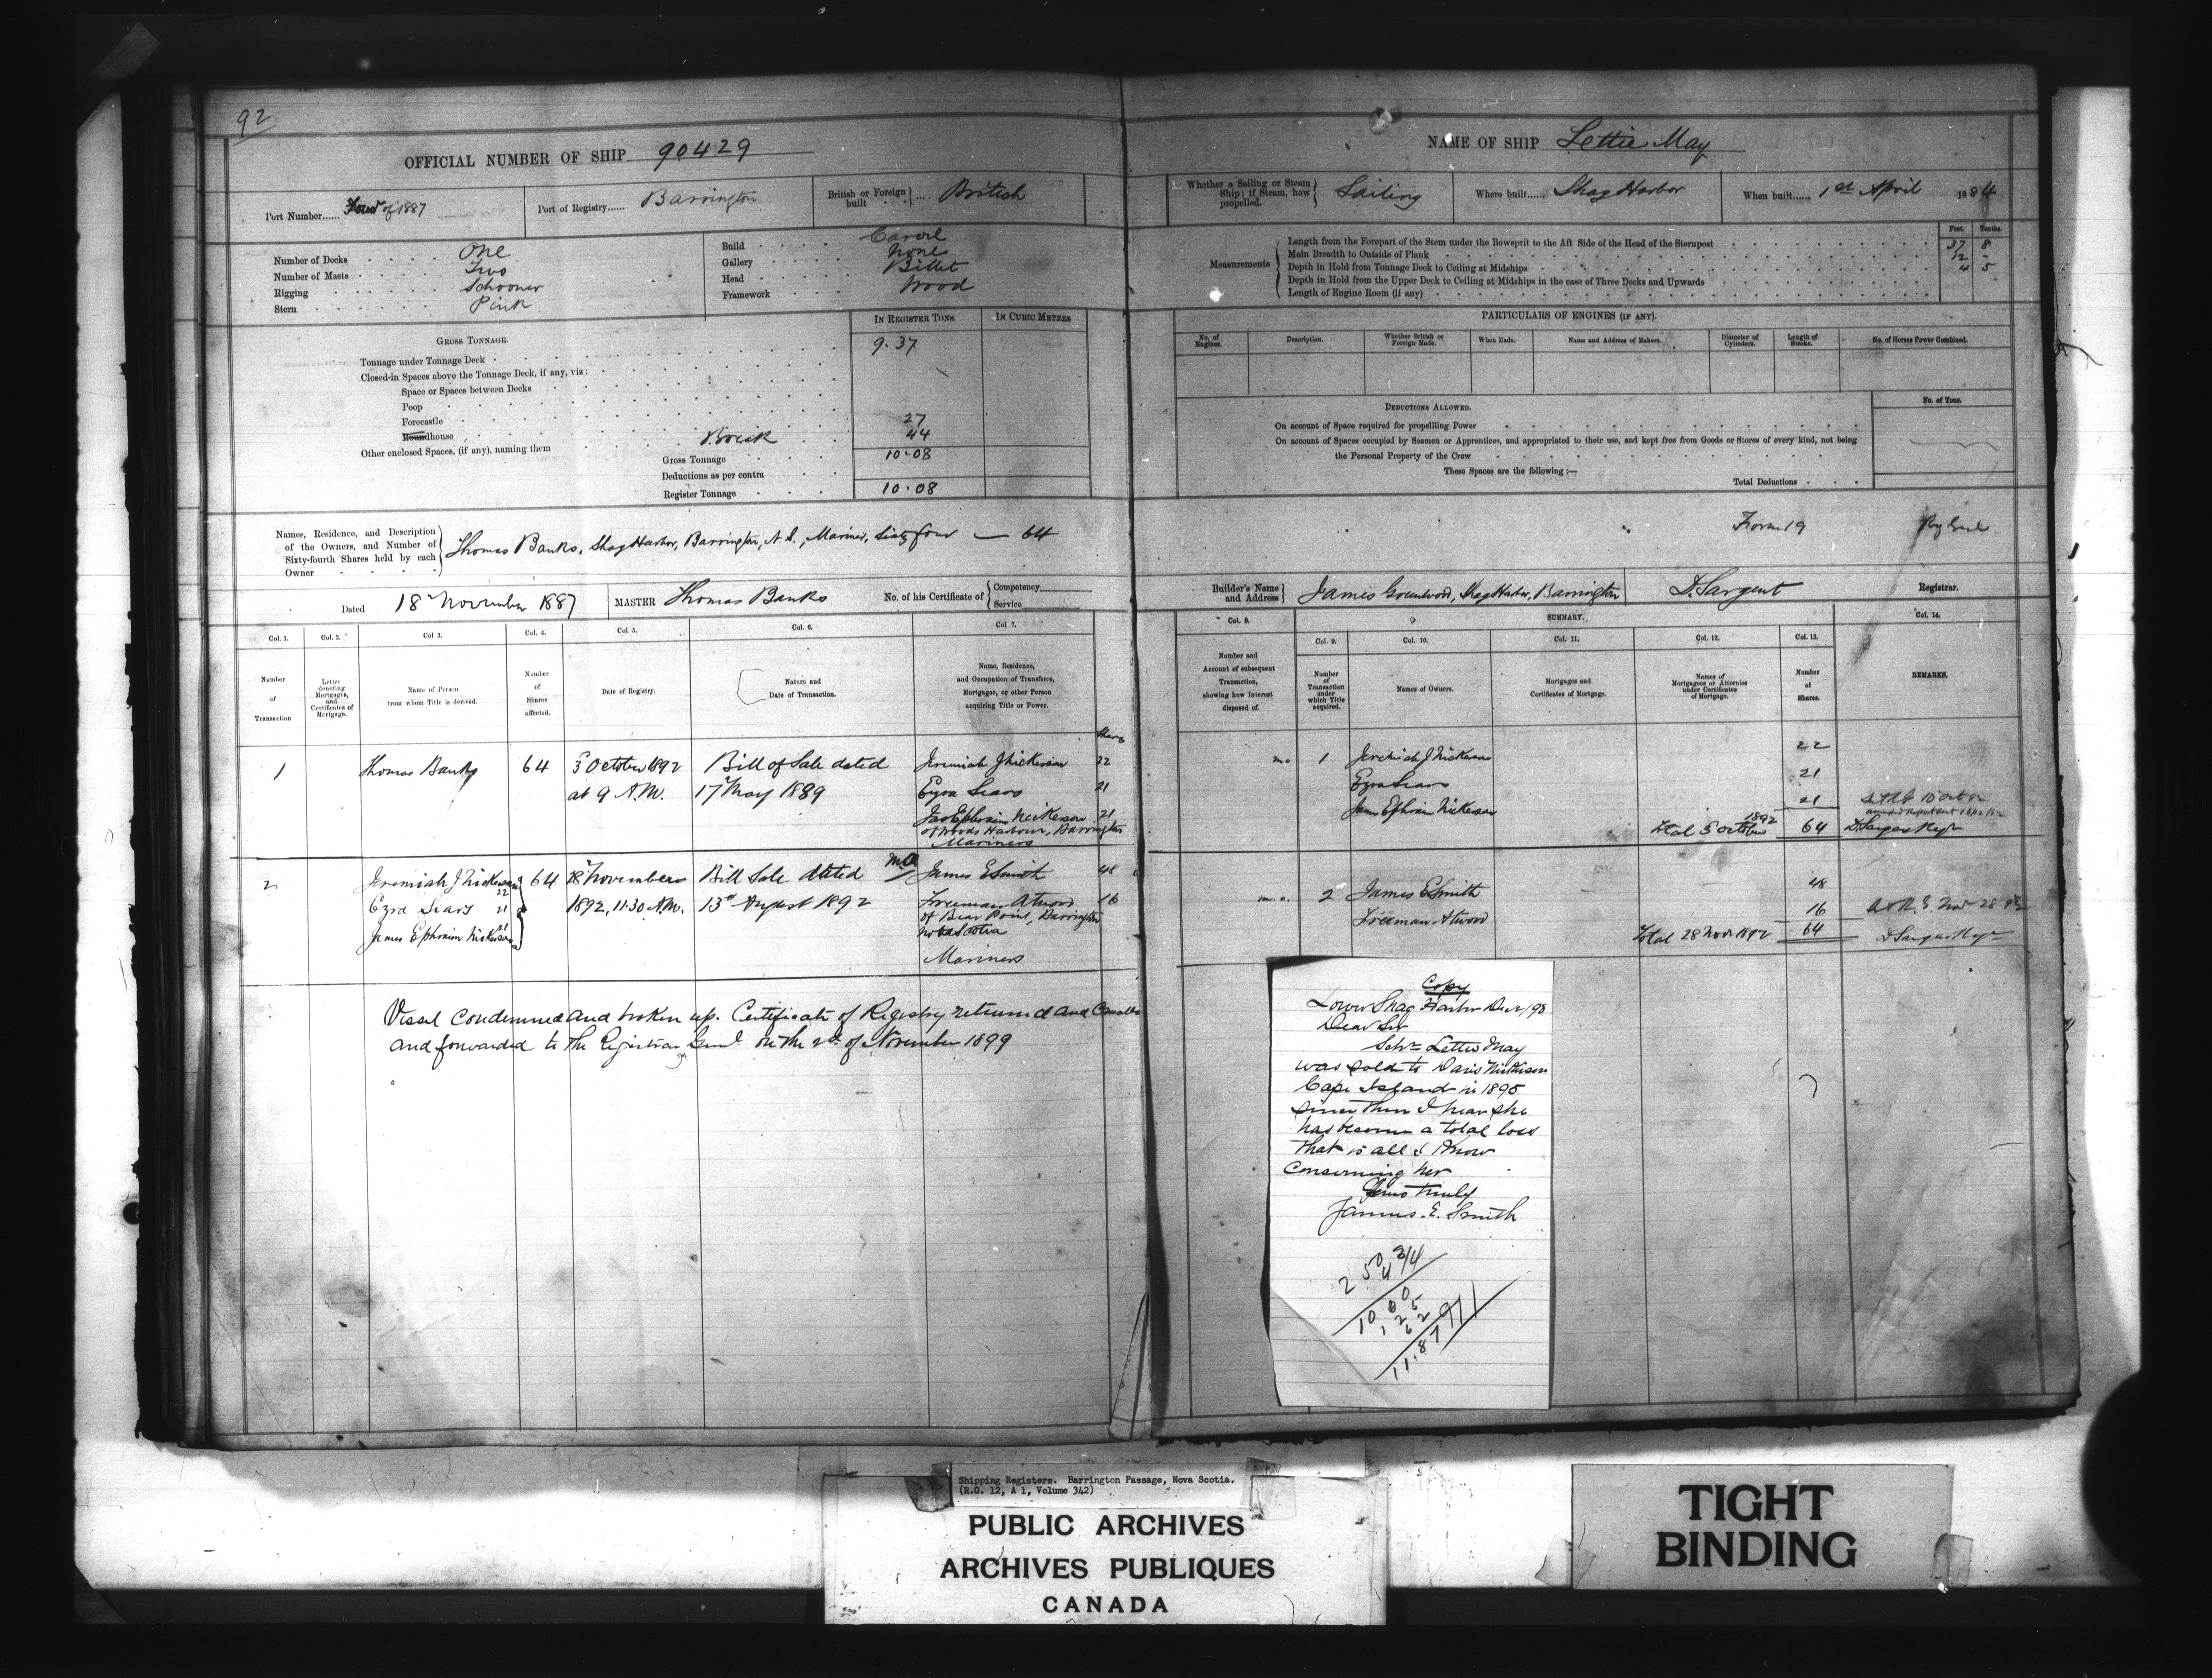 92
OFFICIAL NUMBER OF SHIP 90429
Port Number...... Four of 1887
Port of Registry...... Barrington
British or Foreign built .... British
Number of Decks One
Number of Masts Two
Rigging Schooner
Stern Pink
Build Carvel
Gallery None
Head Billet
Framework Wood
GROSS TONNAGE.
IN REGISTER TONS.
IN CUBIC METRES
Tonnage under Tonnage Deck 9.37
Closed-in Spaces above the Tonnage Deck, if any, viz:
Space or Spaces between Decks
Poop
Forecastle 27
Roundhouse 44
Other enclosed Spaces, (if any), naming them Break
Gross Tonnage 10.08
Deductions as per contra
Register Tonnage 10.08
Names, Residence, and Description of the Owners, and Number of Sixty-fourth Shares held by each Owner
Thomas Banks, Shag Harbor, Barrington, N.S., Mariner, Sixty four — 64
Dated 18 November 1887
MASTER Thomas Banks
No. of his Certificate of Competency Service
Col. 1. Col. 2. Col 3. Col. 4. Col. 5. Col. 6. Col. 7.
Number of Transaction
Letter denoting Mortgages, and Certificates of Mortgage.
Name of Person from whom Title is derived.
Number of Shares affected.
Date of Registry.
Nature and Date of Transaction.
Name, Residence, and Occupation of Transferee, Mortgagee, or other Person acquiring Title or Power.
Shares
1 Thomas Banks 64 3 October 1892 Bill of Sale dated Jeremiah J Nickerson 22
at 9 A.M. 17 May 1889 Ezra Sears 21
Jas Ephraim Nickerson 21
of Woods Harbour, Barrington
Mariners
2 Jeremiah J Nickerson 22 64 28 November Bill Sale dated M.O. James E Smith 48
Ezra Sears 21 1892, 11.30 A.M. 13th August 1892 Freeman Atwood 16
James Ephraim Nickerson 21 of Bear Point, Barrington
Nova Scotia
Mariners
Vessel condemned and broken up. Certificate of Registry returned and
and forwarded to the Registrar Genl on the 2d of November 1899
NAME OF SHIP Lettie May
Whether a Sailing or Steam Ship; if Steam, how propelled. Sailing
Where built...... Shag Harbor
When built...... 1st April 1884
Measurements
Feet. Tenths.
Length from the Forepart of the Stem under the Bowsprit to the Aft Side of the Head of the Sternpost 37 8
Main Breadth to Outside of Plank 12 -
Depth in Hold from Tonnage Deck to Ceiling at Midships 4 5
Depth in Hold from the Upper Deck to Ceiling at Midships in the case of Three Decks and Upwards
Length of Engine Room (if any)
PARTICULARS OF ENGINES (IF ANY).
No. of Engines.
Description.
Whether British or Foreign Made.
When Made.
Name and Address of Makers.
Diameter of Cylinders.
Length of Stroke.
No. of Horses Power Combined.
DEDUCTIONS ALLOWED.
No. of Tons.
On account of Space required for propelling Power
On account of Spaces occupied by Seamen or Apprentices, and appropriated to their use, and kept free from Goods or Stores of every kind, not being
the Personal Property of the Crew
These Spaces are the following:—
Total Deductions
Form 19
Builder's Name and Address James Greenwood, Shag Harbor, Barrington
D. Sargent Registrar.
SUMMARY.
Col. 8. Col. 9. Col. 10. Col. 11. Col. 12. Col. 13. Col. 14.
Number and Account of subsequent Transaction, showing how Interest disposed of.
Number of Transaction under which Title acquired.
Names of Owners.
Mortgages and Certificates of Mortgage.
Names of Mortgagees or Attornies under Certificates of Mortgage.
Number of Shares.
REMARKS.
m.o 1 Jeremiah J Nickerson 22
Ezra Sears 21
James Ephraim Nickerson 21
Total 3 October 1892 64 D Sargent Regr
m.o. 2 James E Smith 48
Freeman Atwood 16
Total 28 Nov 1892 64 D Sargent Regr
Copy
Lower Shag Harbor
Dear Sir
Schr Lettie May
was sold to Davis Nickerson
Cape Island in 1895
since then I hear she
has become a total loss
that is all I know
concerning her
Yours truly
James. E. Smith
Shipping Registers. Barrington Passage, Nova Scotia.
(R.G. 12, A 1, Volume 342)
PUBLIC ARCHIVES
ARCHIVES PUBLIQUES
CANADA
TIGHT
BINDING